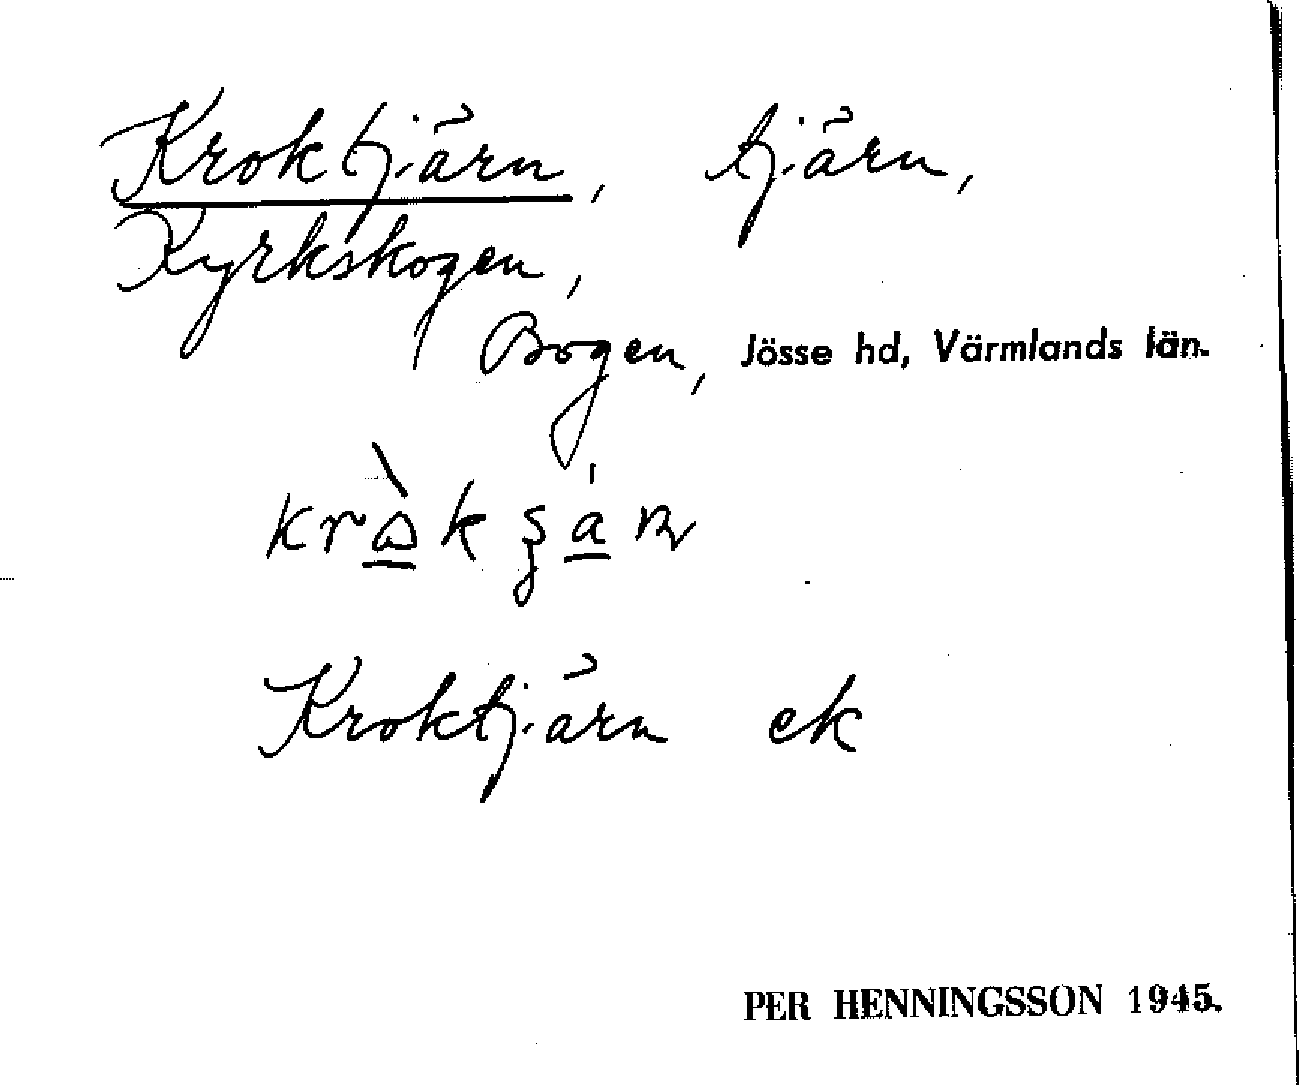 Kroktjärn, tjärn,
Kyrkskogen,
Bogen, Jösse hd, Värmlands län.
Kroktjärn ek
PER HENNINGSSON 1945.